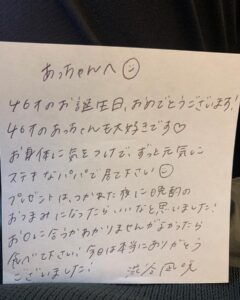 あっちゃんへ☺
46才のお誕生日、おめでとうございます!
46才のあっちゃんも大好きです♡
お身体に気をつけて、ずっと元気に
ステキなパパで居て下さい☺
プレゼントは、つかれた夜に晩酌の
おつまみになったらいいなと思いました!
お口に合うかわかりませんがよかったら
食べて下さい!今日は本当にありがとう
ございました!
渋谷凪咲